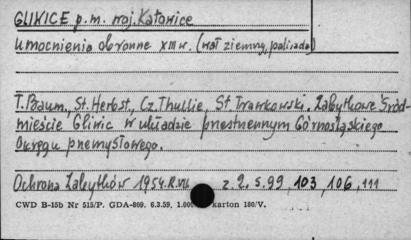 GLIWICE p.m. woj. Katowice
Umocnienia obronne XIII w. (wał ziemny, palisada)
T. Baum., St. Herbst, Cz. Thullie, St Trawkowski. Zabytkowe Śród-
mieście Gliwic w układzie przestrzennym Górnośląskiego
Okręgu przemysłowego.
Ochrona Zabytków 1954. R. VII z. 2. s. 99, 103, 106, 111
CWD B-15b Nr 515/P. GDA-809. 6.3.59, 1.000 karton 180/V.